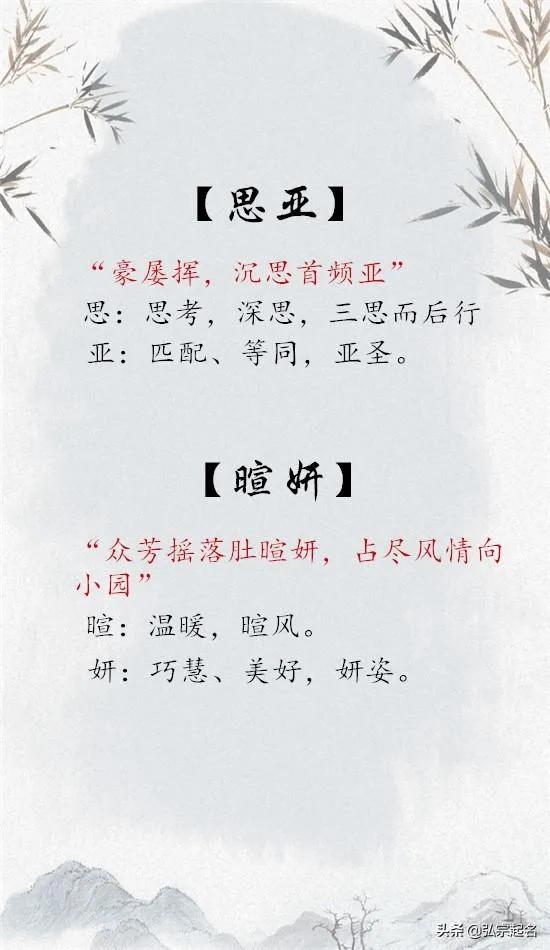 【思亚】
“豪屡挥，沉思首频亚”
思：思考，深思，三思而后行
亚：匹配、等同，亚圣。
【暄妍】
“众芳摇落肚暄妍，占尽风情向
小园”
暄：温暖，暄风。
妍：巧慧、美好，妍姿。
头条@弘宗起名